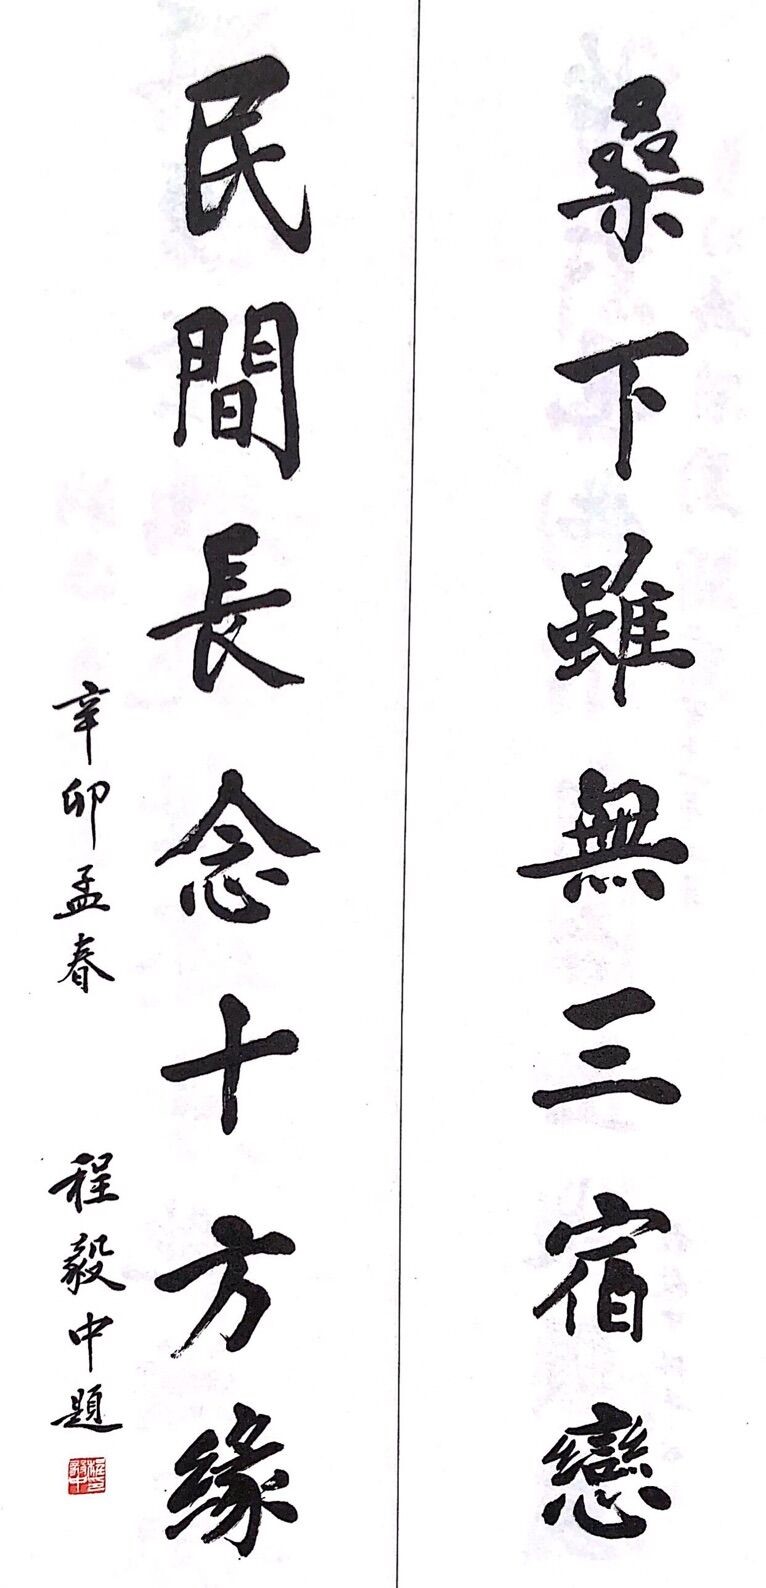 桑下雖無三宿戀
民間長念十方緣
辛卯孟春
程毅中題